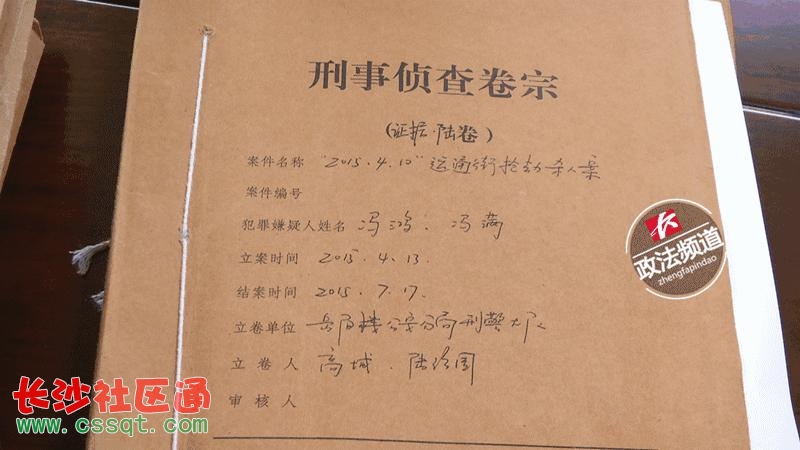 刑事侦查卷宗
(证据·陆卷)
案件名称 "2015.4.10"运通街抢劫杀人案
案件编号
犯罪嫌疑人姓名 冯鸿、冯满
立案时间 2015.4.13.
结案时间 2015.7.17.
立卷单位 岳阳楼公安分局刑警大队
立卷人 高城、陆
审核人
政法频道
zhengfapindao
长沙社区通
www.cssqt.com